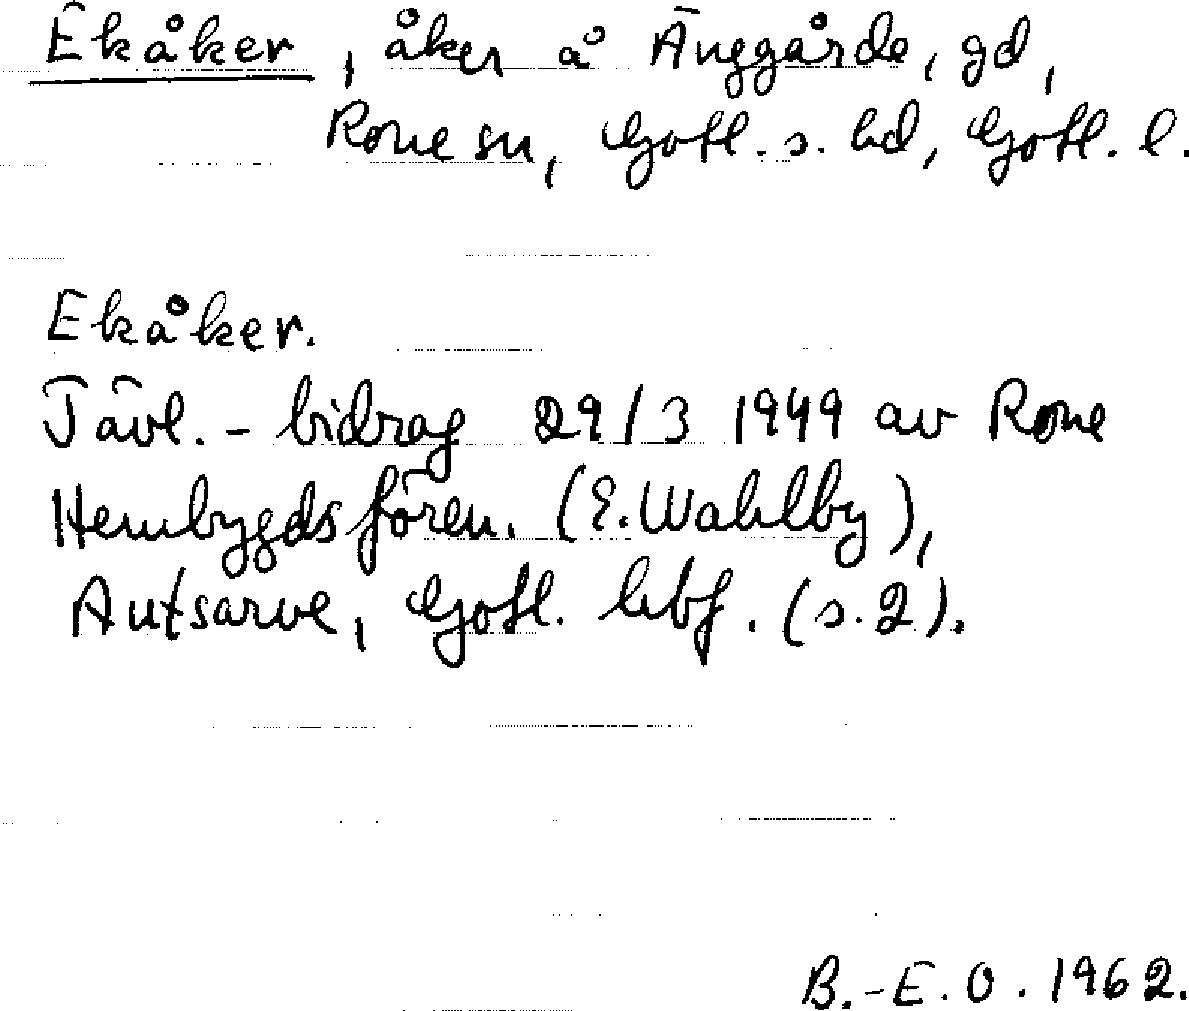 Ekåker, åker å Änggårde, gd,
Rone sn, Gotl. s. hd, Gotl. l.
Ekåker.
Tävl.-bidrag 29/3 1949 av Rone
Hembygdsfören. (E. Wahlby),
Autsarve, Gotl. lbf. (s. 2).
B.-E. O. 1962.